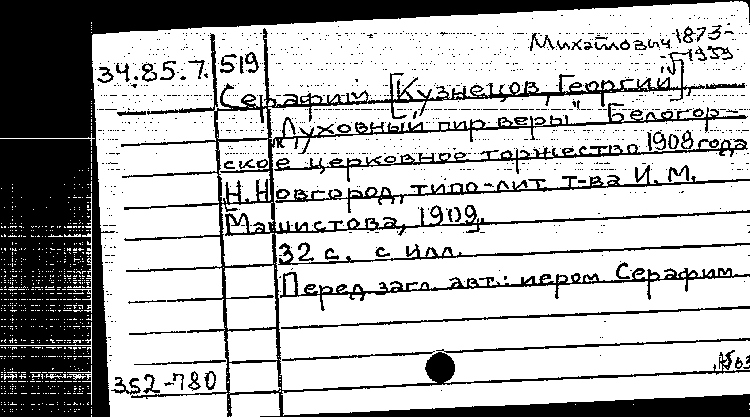 Михайлович 1873-
1959
34.85.7. 519
Серафим [Кузнецов, Георгий],
"Духовный пир веры" Белогор-
ское церковное торжество 1908 года
Н. Новгород, типо-лит. т-ва И. М.
Машистова, 1909.
32 с. с илл.
Перед загл. авт.: иером Серафим
352-780